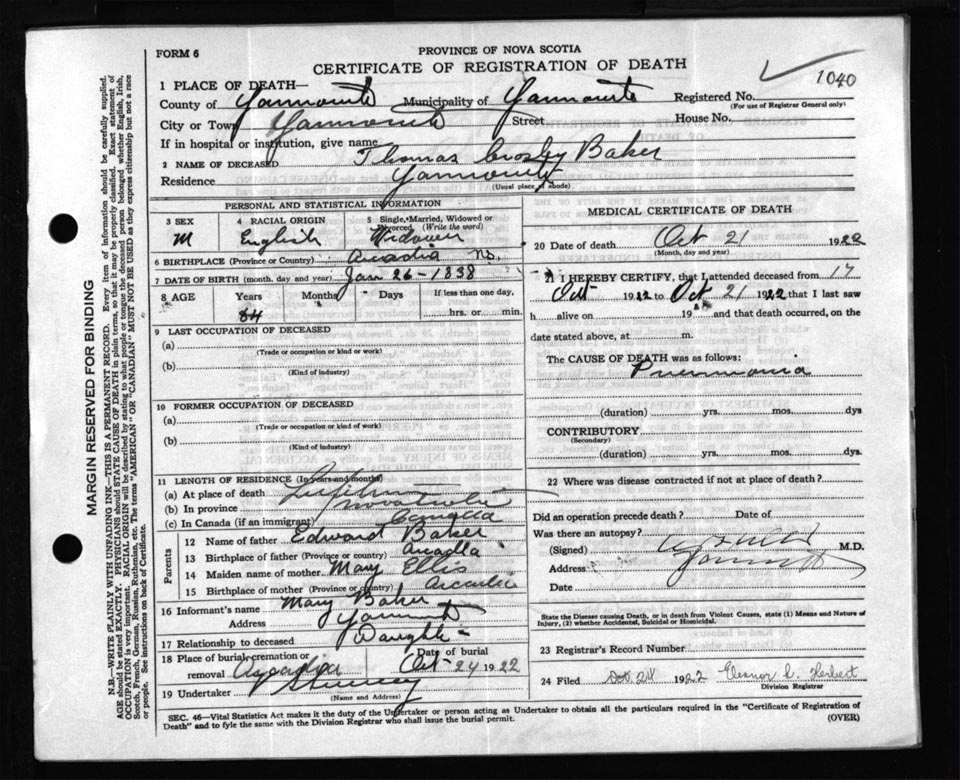 FORM 6
PROVINCE OF NOVA SCOTIA
CERTIFICATE OF REGISTRATION OF DEATH
1040
1 PLACE OF DEATH—
County of Yarmouth Municipality of Yarmouth Registered No.
(For use of Registrar General only)
City or Town Yarmouth Street House No.
If in hospital or institution, give name
2 NAME OF DECEASED Thomas Crosby Baker
Residence Yarmouth
(Usual place of abode)
PERSONAL AND STATISTICAL INFORMATION
3 SEX 4 RACIAL ORIGIN 5 Single, Married, Widowed or Divorced (Write the word)
M English Widower
6 BIRTHPLACE (Province or Country) Arcadia N.S.
7 DATE OF BIRTH (month, day and year) Jan 26 - 1838
8 AGE Years Months Days If less than one day,
84 hrs. or min.
9 LAST OCCUPATION OF DECEASED
(a)
(Trade or occupation or kind or work)
(b)
(Kind of industry)
10 FORMER OCCUPATION OF DECEASED
(a)
(Trade or occupation or kind of work)
(b)
(Kind of industry)
11 LENGTH OF RESIDENCE (In years and months)
(a) At place of death Lifetime
(b) In province Nova Scotia
(c) In Canada (if an immigrant) Canada
Parents
12 Name of father Edward Baker
13 Birthplace of father (Province or country) Arcadia
14 Maiden name of mother Mary Ellis
15 Birthplace of mother (Province or country) Arcadia
16 Informant's name Mary Baker
Address Yarmouth
17 Relationship to deceased Daughter
18 Place of burial, cremation or removal Arcadia Date of burial Oct 24 1922
19 Undertaker Sweeney
(Name and Address)
MEDICAL CERTIFICATE OF DEATH
20 Date of death Oct 21 1922
(Month, day and year)
21 I HEREBY CERTIFY, that I attended deceased from 17
Oct 1922 to Oct 21 1922 that I last saw
h alive on 19 and that death occurred, on the
date stated above, at m.
The CAUSE OF DEATH was as follows:
Pneumonia
(duration) yrs. mos. dys
CONTRIBUTORY
(Secondary)
(duration) yrs. mos. dys
22 Where was disease contracted if not at place of death?
Did an operation precede death?
Was there an autopsy?
(Signed) M.D.
Address Yarmouth
Date
State the Disease causing Death, or in death from Violent Causes, state (1) Means and Nature of Injury, (2) whether Accidental, Suicidal or Homicidal.
23 Registrar's Record Number
24 Filed Oct 24 1922 Eleanor C. Herbert
Division Registrar
SEC. 46—Vital Statistics Act makes it the duty of the Undertaker or person acting as Undertaker to obtain all the particulars required in the "Certificate of Registration of
Death" and to fyle the same with the Division Registrar who shall issue the burial permit.
(OVER)
MARGIN RESERVED FOR BINDING
N.B—WRITE PLAINLY WITH UNFADING INK—THIS IS A PERMANENT RECORD. Every item of information should be carefully supplied.
AGE should be stated EXACTLY. PHYSICIANS should STATE CAUSE OF DEATH in plain terms, so that it may be properly classified. Exact statement of
OCCUPATION is very important. RACIAL ORIGIN will be described by stating to what people or tongue the deceased person belonged whether English, Irish,
Scotch, French, German, Russian, Ruthenian, etc. The terms "AMERICAN" OR "CANADIAN" MUST NOT BE USED as they express citizenship but not a race
or people. See instructions on back of Certificate.